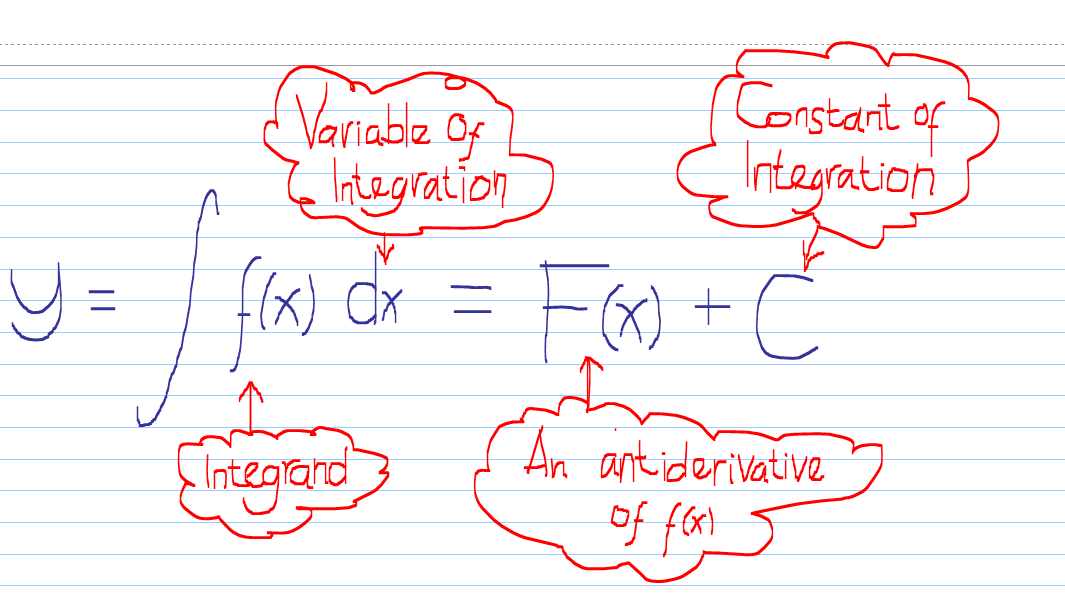 Variable Of
Integration
Constant of
Integration
y = ∫ f(x) dx = F(x) + C
Integrand
An antiderivative
of f(x)